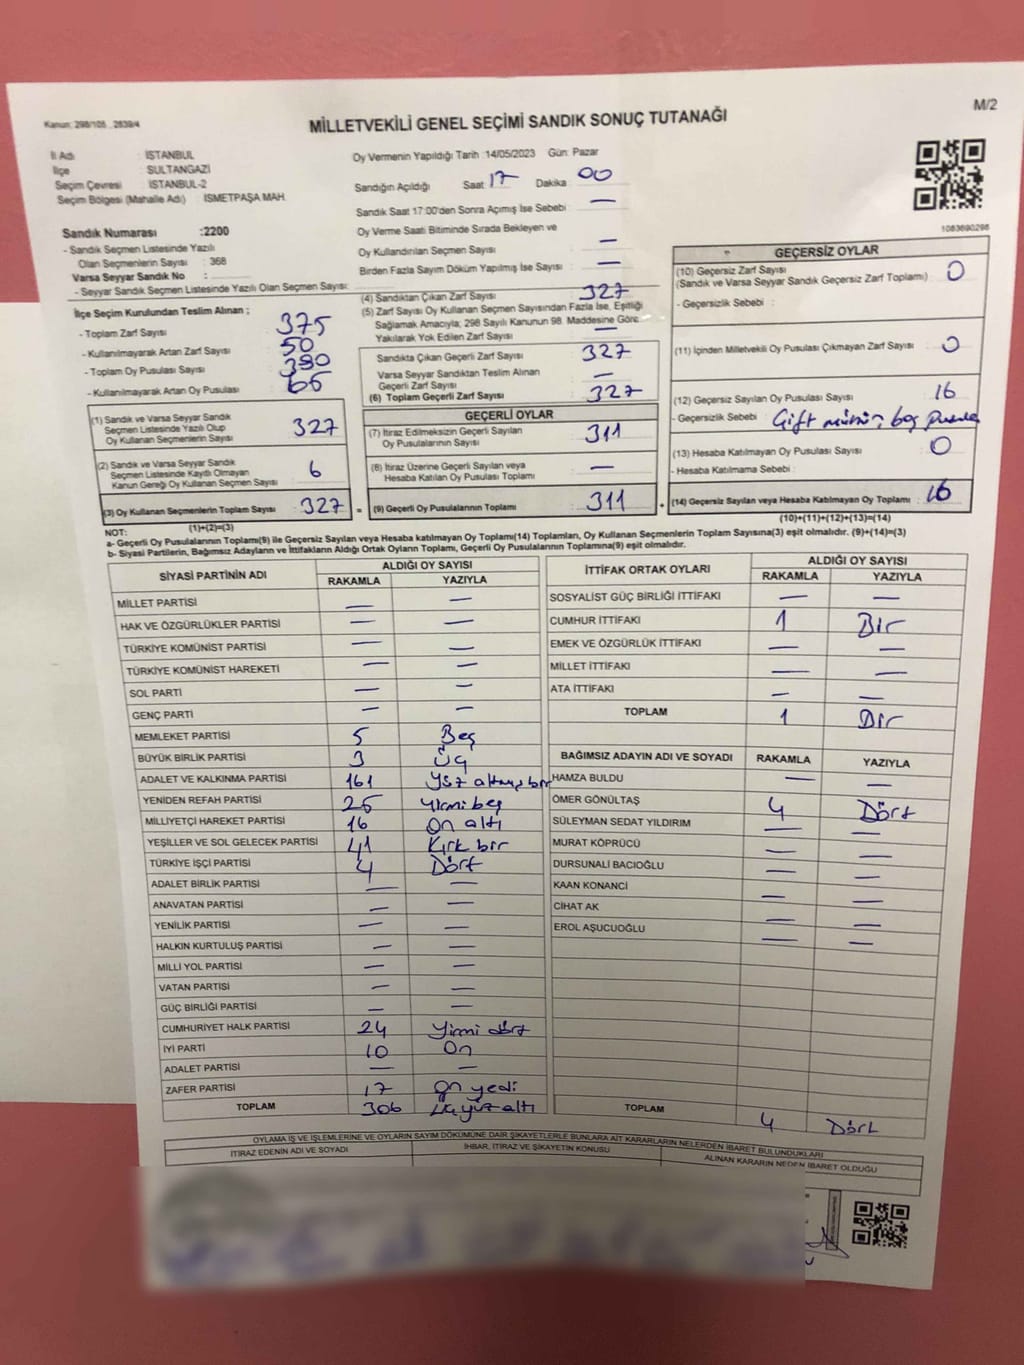 Kanun: 298/105 , 2839/4
M/2
MİLLETVEKİLİ GENEL SEÇİMİ SANDIK SONUÇ TUTANAĞI
İl Adı : İSTANBUL
İlçe : SULTANGAZİ
Seçim Çevresi : İSTANBUL-2
Seçim Bölgesi (Mahalle Adı) : İSMETPAŞA MAH.
Sandık Numarası :2200
- Sandık Seçmen Listesinde Yazılı
Olan Seçmenlerin Sayısı : 368
Varsa Seyyar Sandık No :
- Seyyar Sandık Seçmen Listesinde Yazılı Olan Seçmen Sayısı:
Oy Vermenin Yapıldığı Tarih :14/05/2023 Gün: Pazar
Sandığın Açıldığı Saat 17 Dakika 00
Sandık Saat 17:00'den Sonra Açımış İse Sebebi : —
Oy Verme Saati Bitiminde Sırada Bekleyen ve
Oy Kullandırılan Seçmen Sayısı : —
Birden Fazla Sayım Döküm Yapılmış İse Sayısı : —
1083690298
İlçe Seçim Kurulundan Teslim Alınan ;
- Toplam Zarf Sayısı : 375
- Kullanılmayarak Artan Zarf Sayısı : 50
- Toplam Oy Pusulası Sayısı : 390
- Kullanılmayarak Artan Oy Pusulası : 65
(1) Sandık ve Varsa Seyyar Sandık
Seçmen Listesinde Yazılı Olup
Oy Kullanan Seçmenlerin Sayısı : 327
(2) Sandık ve Varsa Seyyar Sandık
Seçmen Listesinde Kayıtlı Olmayan
Kanun Gereği Oy Kullanan Seçmen Sayısı : 6
(3) Oy Kullanan Seçmenlerin Toplam Sayısı : 327 =
(1)+(2)=(3)
(4) Sandıktan Çıkan Zarf Sayısı : 327
(5) Zarf Sayısı Oy Kullanan Seçmen Sayısından Fazla İse, Eşitliği
Sağlamak Amacıyla; 298 Sayılı Kanunun 98. Maddesine Göre
Yakılarak Yok Edilen Zarf Sayısı : —
Sandıkta Çıkan Geçerli Zarf Sayısı : 327
Varsa Seyyar Sandıktan Teslim Alınan
Geçerli Zarf Sayısı : —
(6) Toplam Geçerli Zarf Sayısı : 327
GEÇERLİ OYLAR
(7) İtiraz Edilmeksizin Geçerli Sayılan
Oy Pusulalarının Sayısı : 311
(8) İtiraz Üzerine Geçerli Sayılan veya
Hesaba Katılan Oy Pusulası Toplamı : —
(9) Geçerli Oy Pusulalarının Toplamı : 311 +
GEÇERSİZ OYLAR
(10) Geçersiz Zarf Sayısı
(Sandık ve Varsa Seyyar Sandık Geçersiz Zarf Toplamı) : 0
- Geçersizlik Sebebi :
(11) İçinden Milletvekili Oy Pusulası Çıkmayan Zarf Sayısı : 0
(12) Geçersiz Sayılan Oy Pusulası Sayısı : 16
- Geçersizlik Sebebi : Çift mühür, boş pusula
(13) Hesaba Katılmayan Oy Pusulası Sayısı : 0
- Hesaba Katılmama Sebebi :
(14) Geçersiz Sayılan veya Hesaba Katılmayan Oy Toplamı : 16
(10)+(11)+(12)+(13)=(14)
NOT:
a- Geçerli Oy Pusulalarının Toplamı(9) ile Geçersiz Sayılan veya Hesaba katılmayan Oy Toplamı(14) Toplamları, Oy Kullanan Seçmenlerin Toplam Sayısına(3) eşit olmalıdır. (9)+(14)=(3)
b- Siyasi Partilerin, Bağımsız Adayların ve İttifakların Aldığı Ortak Oyların Toplamı, Geçerli Oy Pusulalarının Toplamına(9) eşit olmalıdır.
SİYASİ PARTİNİN ADI ALDIĞI OY SAYISI
RAKAMLA YAZIYLA
MİLLET PARTİSİ — —
HAK VE ÖZGÜRLÜKLER PARTİSİ — —
TÜRKİYE KOMÜNİST PARTİSİ — —
TÜRKİYE KOMÜNİST HAREKETİ — —
SOL PARTİ — —
GENÇ PARTİ — —
MEMLEKET PARTİSİ 5 Beş
BÜYÜK BİRLİK PARTİSİ 3 Üç
ADALET VE KALKINMA PARTİSİ 161 Yüz altmış bir
YENİDEN REFAH PARTİSİ 25 Yirmi beş
MİLLİYETÇİ HAREKET PARTİSİ 16 On altı
YEŞİLLER VE SOL GELECEK PARTİSİ 41 Kırk bir
TÜRKİYE İŞÇİ PARTİSİ 4 Dört
ADALET BİRLİK PARTİSİ — —
ANAVATAN PARTİSİ — —
YENİLİK PARTİSİ — —
HALKIN KURTULUŞ PARTİSİ — —
MİLLİ YOL PARTİSİ — —
VATAN PARTİSİ — —
GÜÇ BİRLİĞİ PARTİSİ — —
CUMHURİYET HALK PARTİSİ 24 Yirmi dört
İYİ PARTİ 10 On
ADALET PARTİSİ — —
ZAFER PARTİSİ 17 On yedi
TOPLAM 306 Üç yüz altı
İTTİFAK ORTAK OYLARI ALDIĞI OY SAYISI
RAKAMLA YAZIYLA
SOSYALİST GÜÇ BİRLİĞİ İTTİFAKI — —
CUMHUR İTTİFAKI 1 Bir
EMEK VE ÖZGÜRLÜK İTTİFAKI — —
MİLLET İTTİFAKI — —
ATA İTTİFAKI — —
TOPLAM 1 Bir
BAĞIMSIZ ADAYIN ADI VE SOYADI RAKAMLA YAZIYLA
HAMZA BULDU — —
ÖMER GÖNÜLTAŞ 4 Dört
SÜLEYMAN SEDAT YILDIRIM — —
MURAT KÖPRÜCÜ — —
DURSUNALİ BACIOĞLU — —
KAAN KONANCİ — —
CİHAT AK — —
EROL AŞUCUOĞLU — —
TOPLAM 4 Dört
OYLAMA İŞ VE İŞLEMLERİNE VE OYLARIN SAYIM DÖKÜMÜNE DAİR ŞİKAYETLERLE BUNLARA AİT KARARLARIN NELERDEN İBARET BULUNDUKLARI
İTİRAZ EDENİN ADI VE SOYADI İHBAR, İTİRAZ VE ŞİKAYETİN KONUSU ALINAN KARARIN NEDEN İBARET OLDUĞU